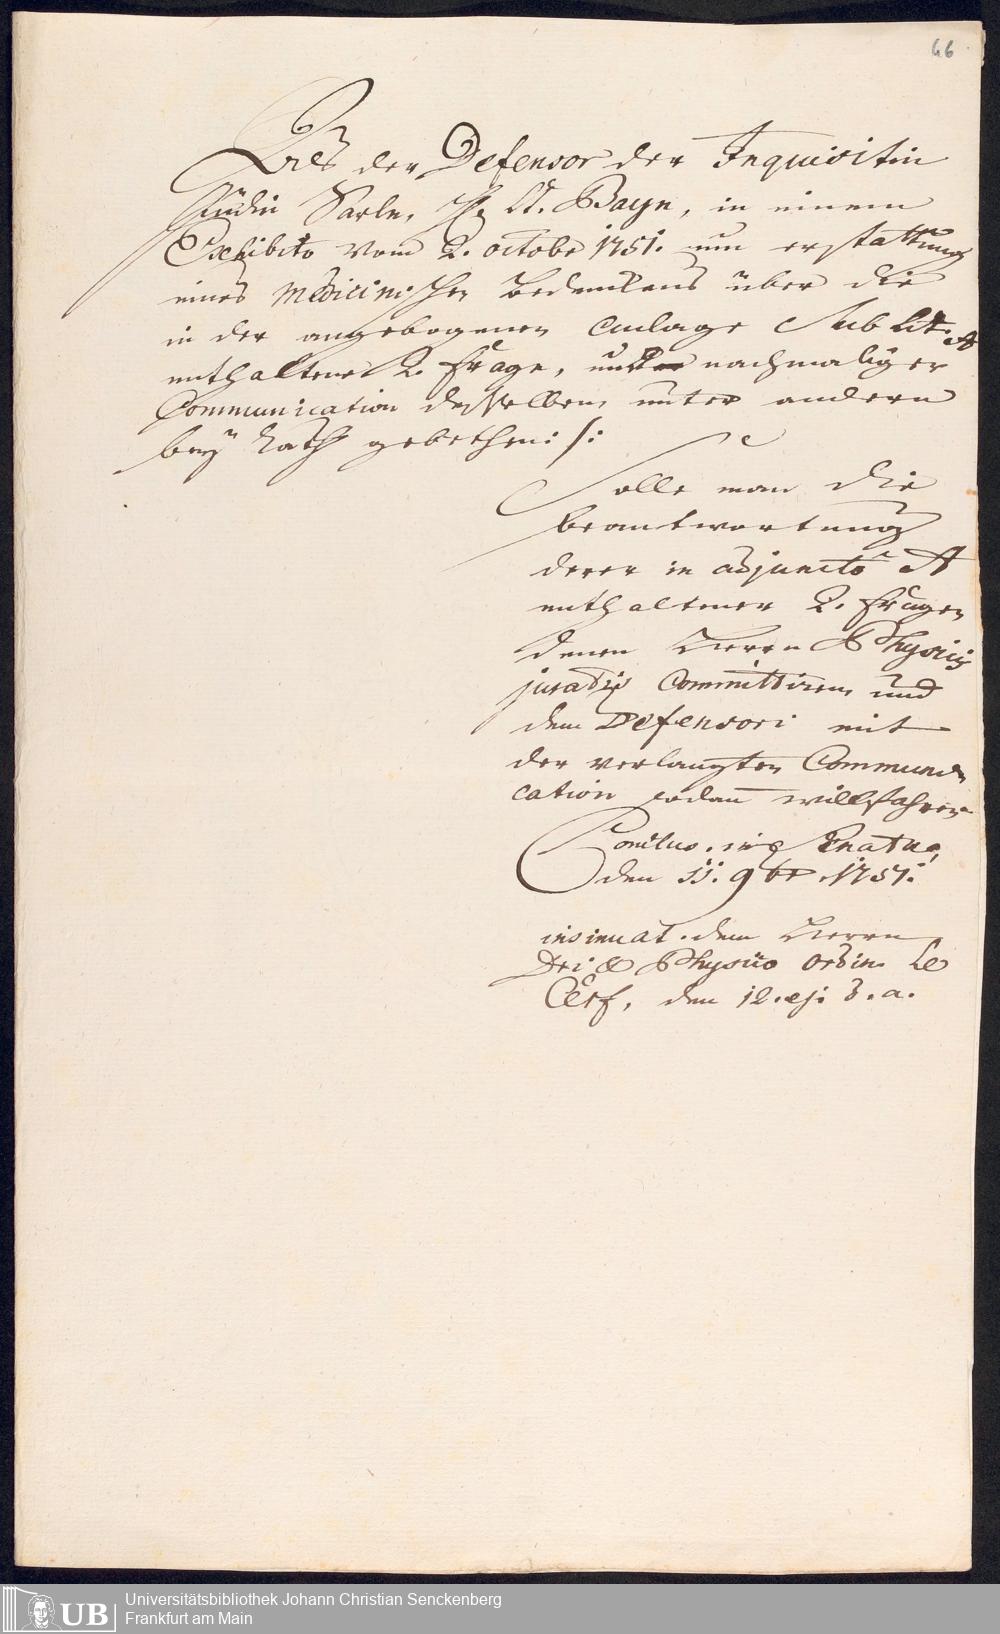 66
Als der Defensor der Inquisitin
Jüdin Särle, H. Lt. Bayn, in einem
Exhibito vom 2. octobr 1751. um erstattung
eines Medicinischen Bedenkens über die
in der angebogenen Anlage Sub Lit. A
enthaltene 2. Frage, und nachmaliger
Communication desselben unter andern
bey Rath gebethen: /:
Solle man die
beantwortung
derer in adjuncto A
enthaltener 2. Fragen
denen Herren Physicis
juratis Committiren und
dem Defensori mit
der verlangten Communi
cation sodann willfahren
Conclus. in Senatu,
den 11. 9br 1751.
insinuat. dem Herrn
Dri & Physico ordin. Le
Cerf, den 12. ej. m. a.
UB
Universitätsbibliothek Johann Christian Senckenberg
Frankfurt am Main